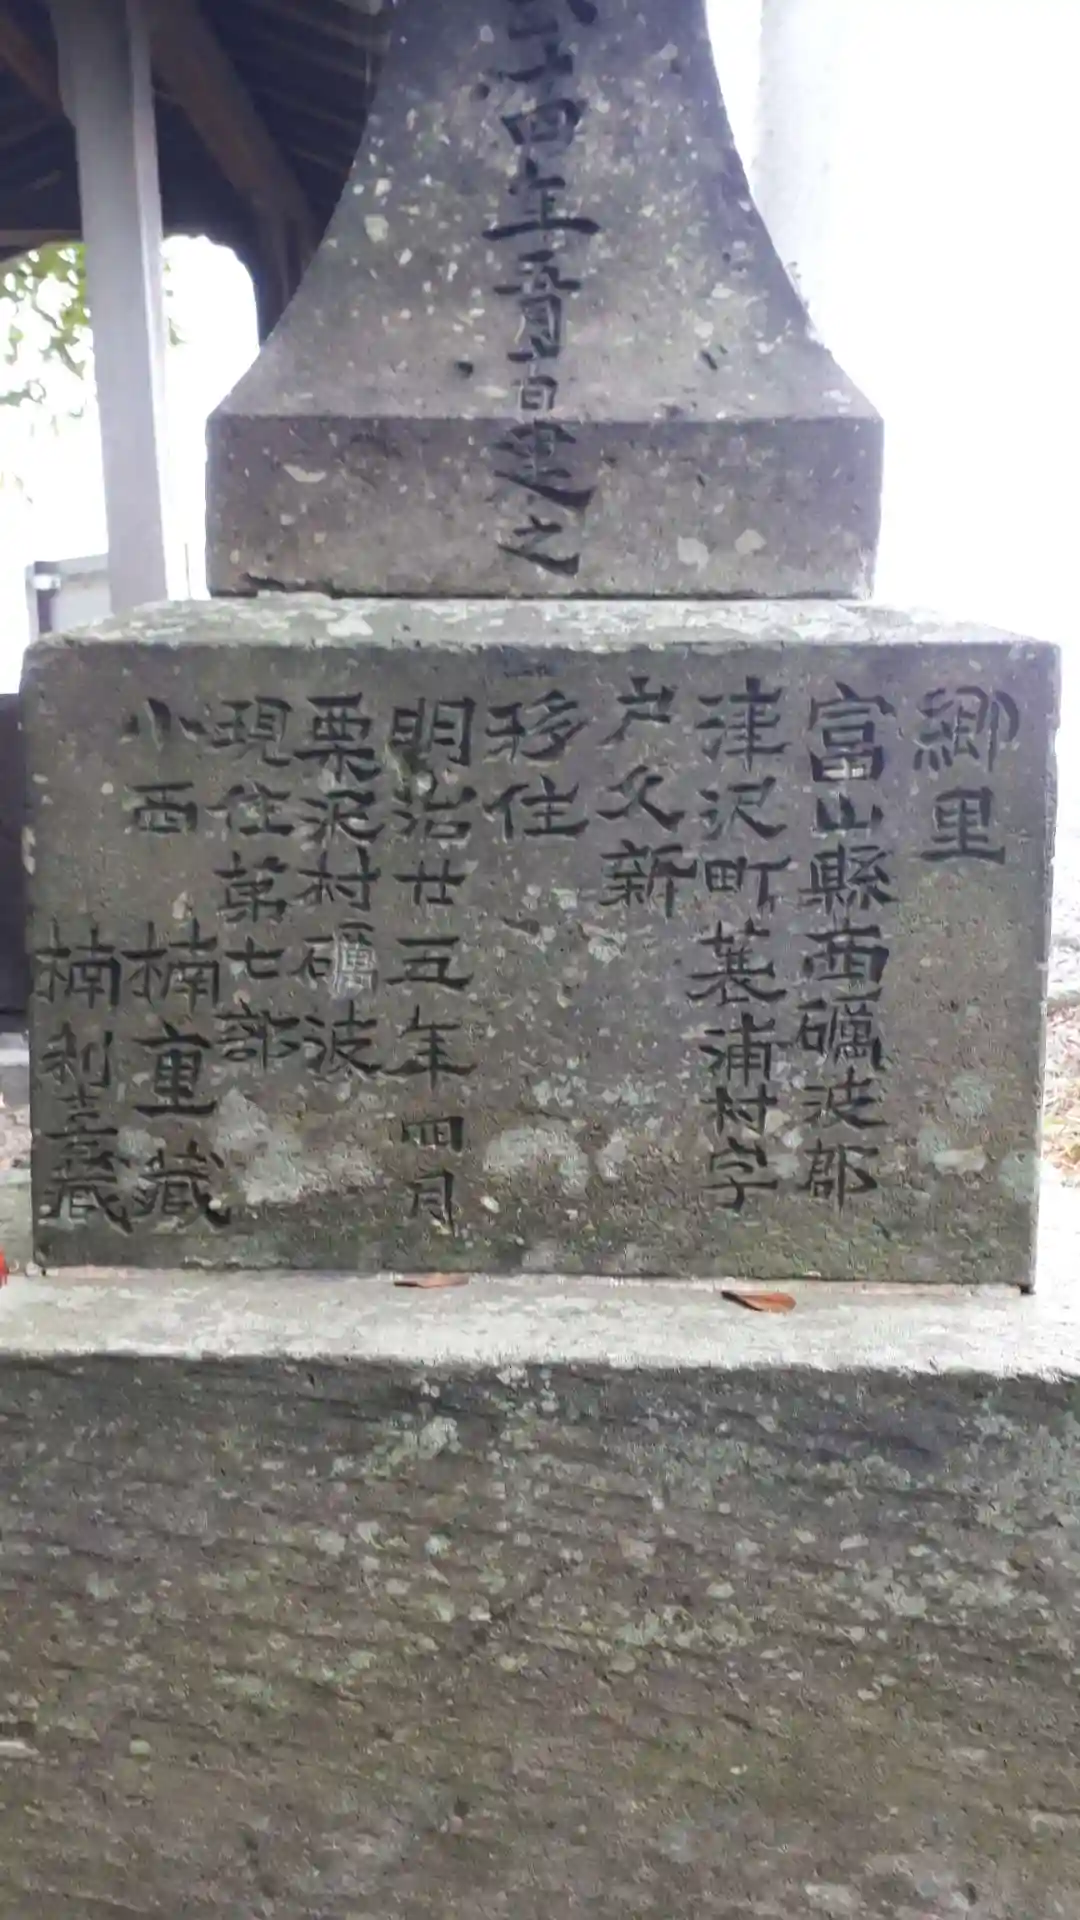 十四年五月吉日建之
郷里
富山縣西礪波郡
津沢町蓑浦村字
戸久新
移住
明治廿五年四月
栗沢村礪波
現住第七部
小西
楠重蔵
楠利喜蔵